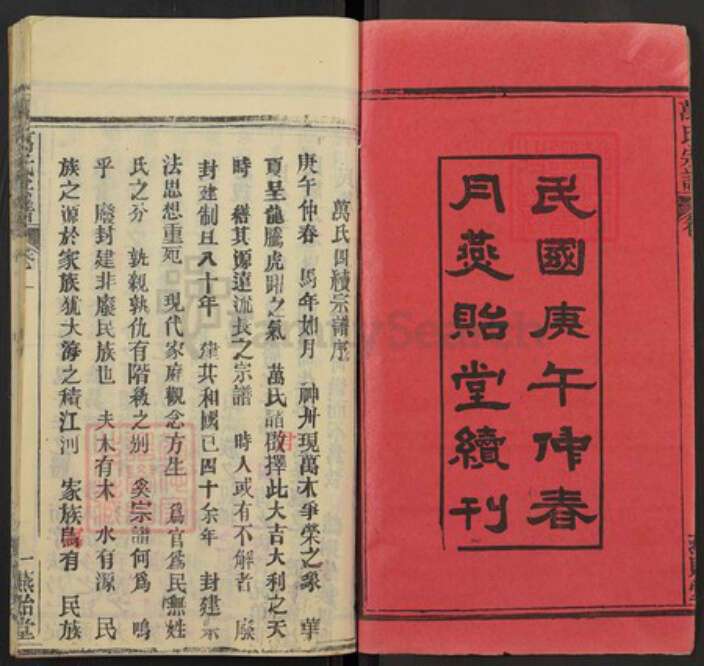 民國庚午仲春
月燕貽堂續刊
萬氏宗譜
萬氏四續宗譜序
庚午仲春 馬年如月 神州現萬木爭榮之象 華
夏呈龍騰虎躍之氣 萬氏諸君擇此大吉大利之天
時 續其源遠流長之宗譜 時人或有不解者 廢
封建制且八十年 建共和國已四十余年 封建宗
法思想重宛 現代家庭觀念方生 為官為民無姓
氏之分 孰親孰仇有階級之別 奚宗譜何為 嗚
乎 廢封建非廢民族也 夫木有本 水有源 民
族之源於家族猶大海之積江河 家族為有 民族
一 燕貽堂